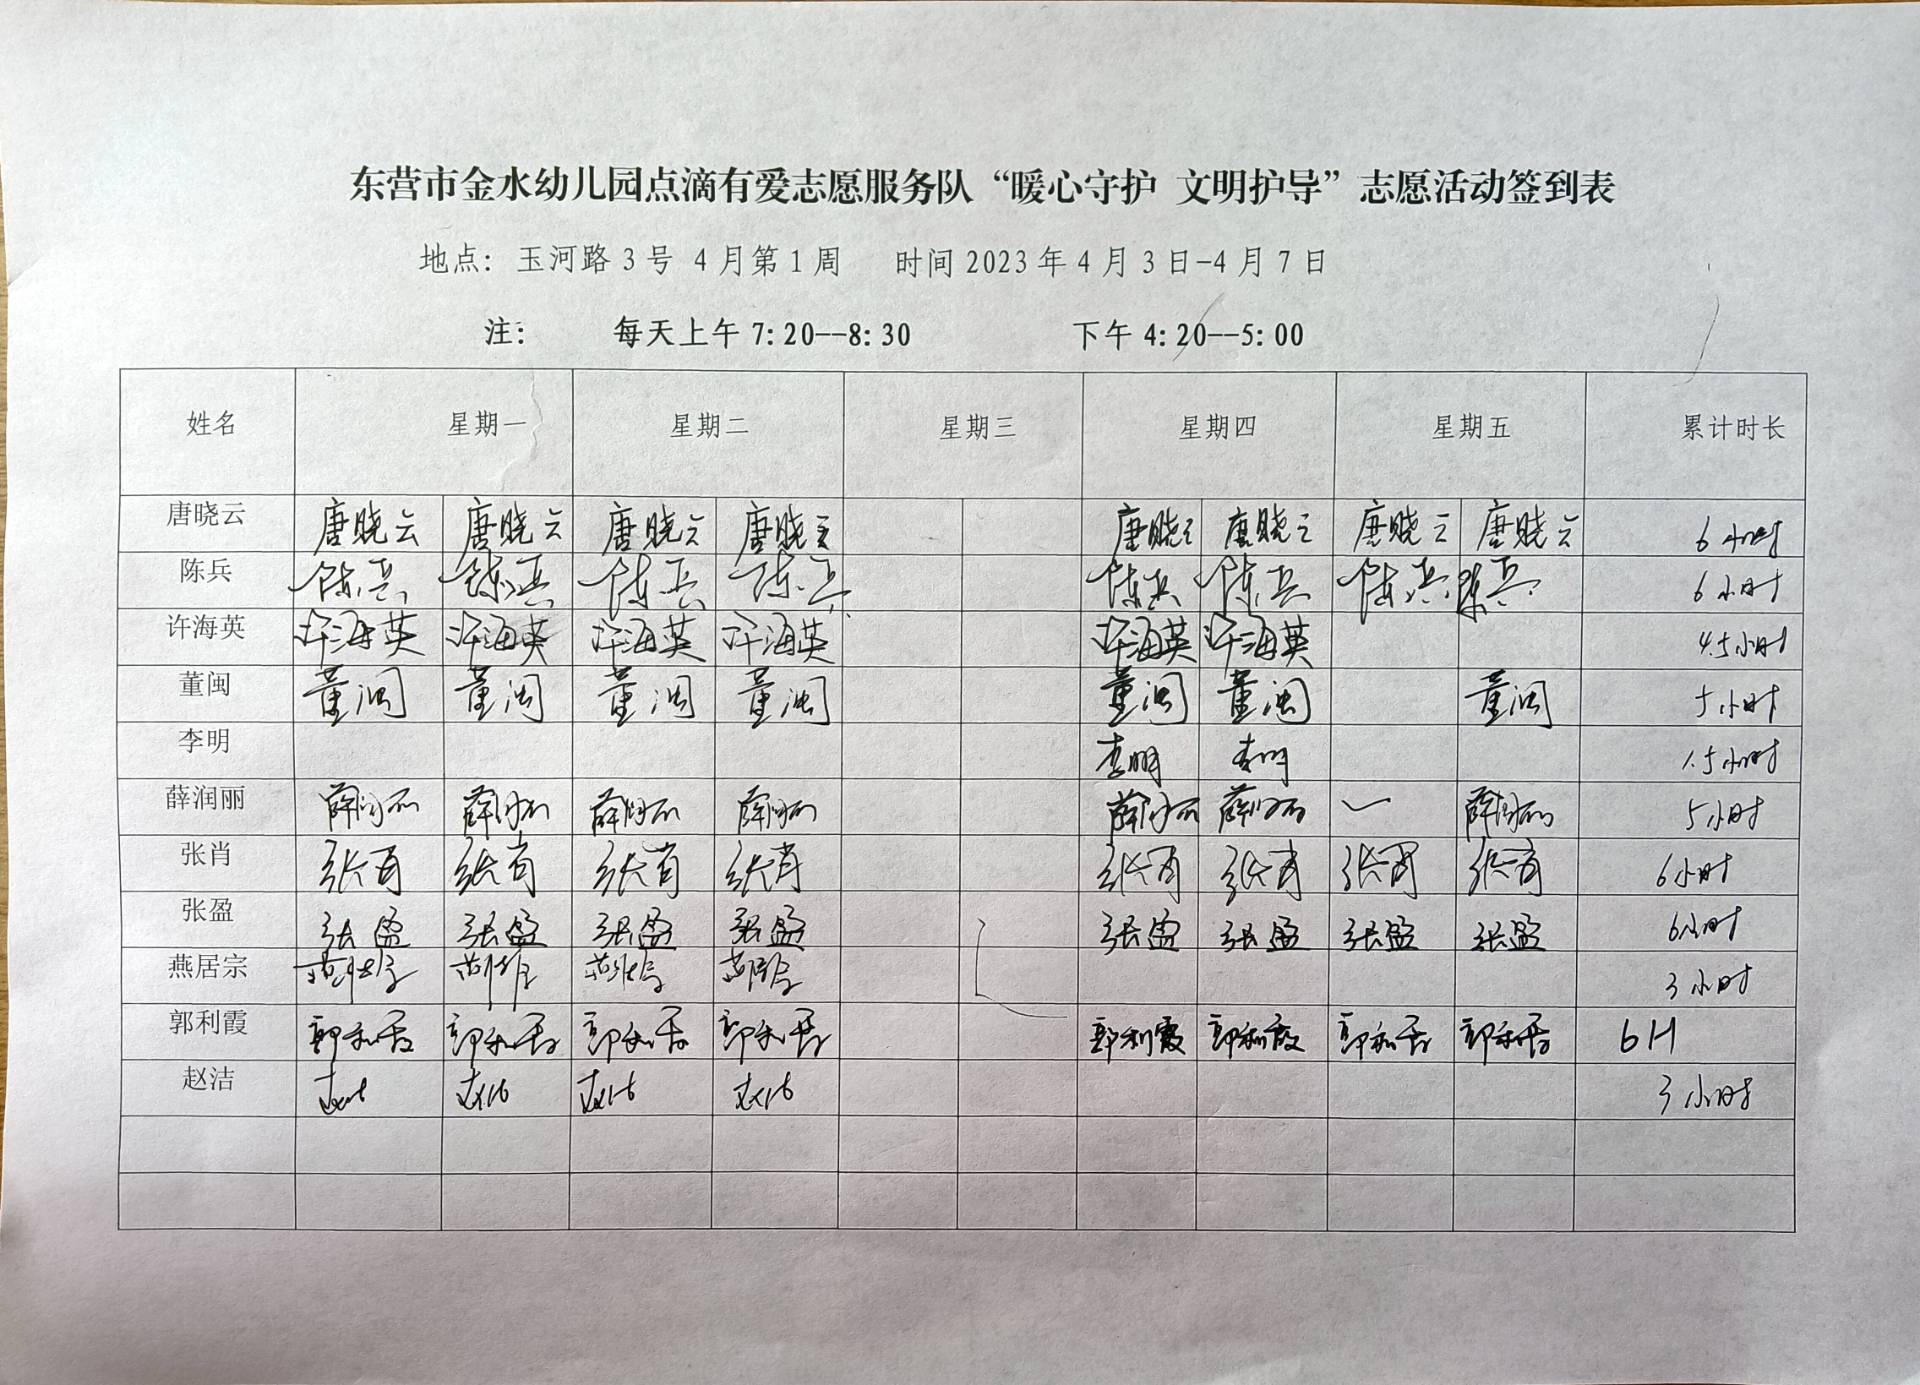 东营市金水幼儿园点滴有爱志愿服务队“暖心守护 文明护导”志愿活动签到表
地点：玉河路3号 4月第1周 时间2023年4月3日-4月7日
注： 每天上午7:20--8:30 下午4:20--5:00
姓名 星期一 星期二 星期三 星期四 星期五 累计时长
唐晓云 唐晓云 唐晓云 唐晓云 唐晓云 唐晓云 唐晓云 唐晓云 唐晓云 6小时
陈兵 陈兵 陈兵 陈兵 陈兵 陈兵 陈兵 陈兵 陈兵 6小时
许海英 许海英 许海英 许海英 许海英 许海英 许海英 4.5小时
董闽 董闽 董闽 董闽 董闽 董闽 董闽 董闽 5小时
李明 李明 李明 1.5小时
薛润丽 薛润丽 薛润丽 薛润丽 薛润丽 薛润丽 薛润丽 — 薛润丽 5小时
张肖 张肖 张肖 张肖 张肖 张肖 张肖 张肖 张肖 6小时
张盈 张盈 张盈 张盈 张盈 张盈 张盈 张盈 张盈 6小时
燕居宗 燕居宗 燕居宗 燕居宗 燕居宗 3小时
郭利霞 郭利霞 郭利霞 郭利霞 郭利霞 郭利霞 郭利霞 郭利霞 郭利霞 6H
赵洁 赵洁 赵洁 赵洁 赵洁 3小时